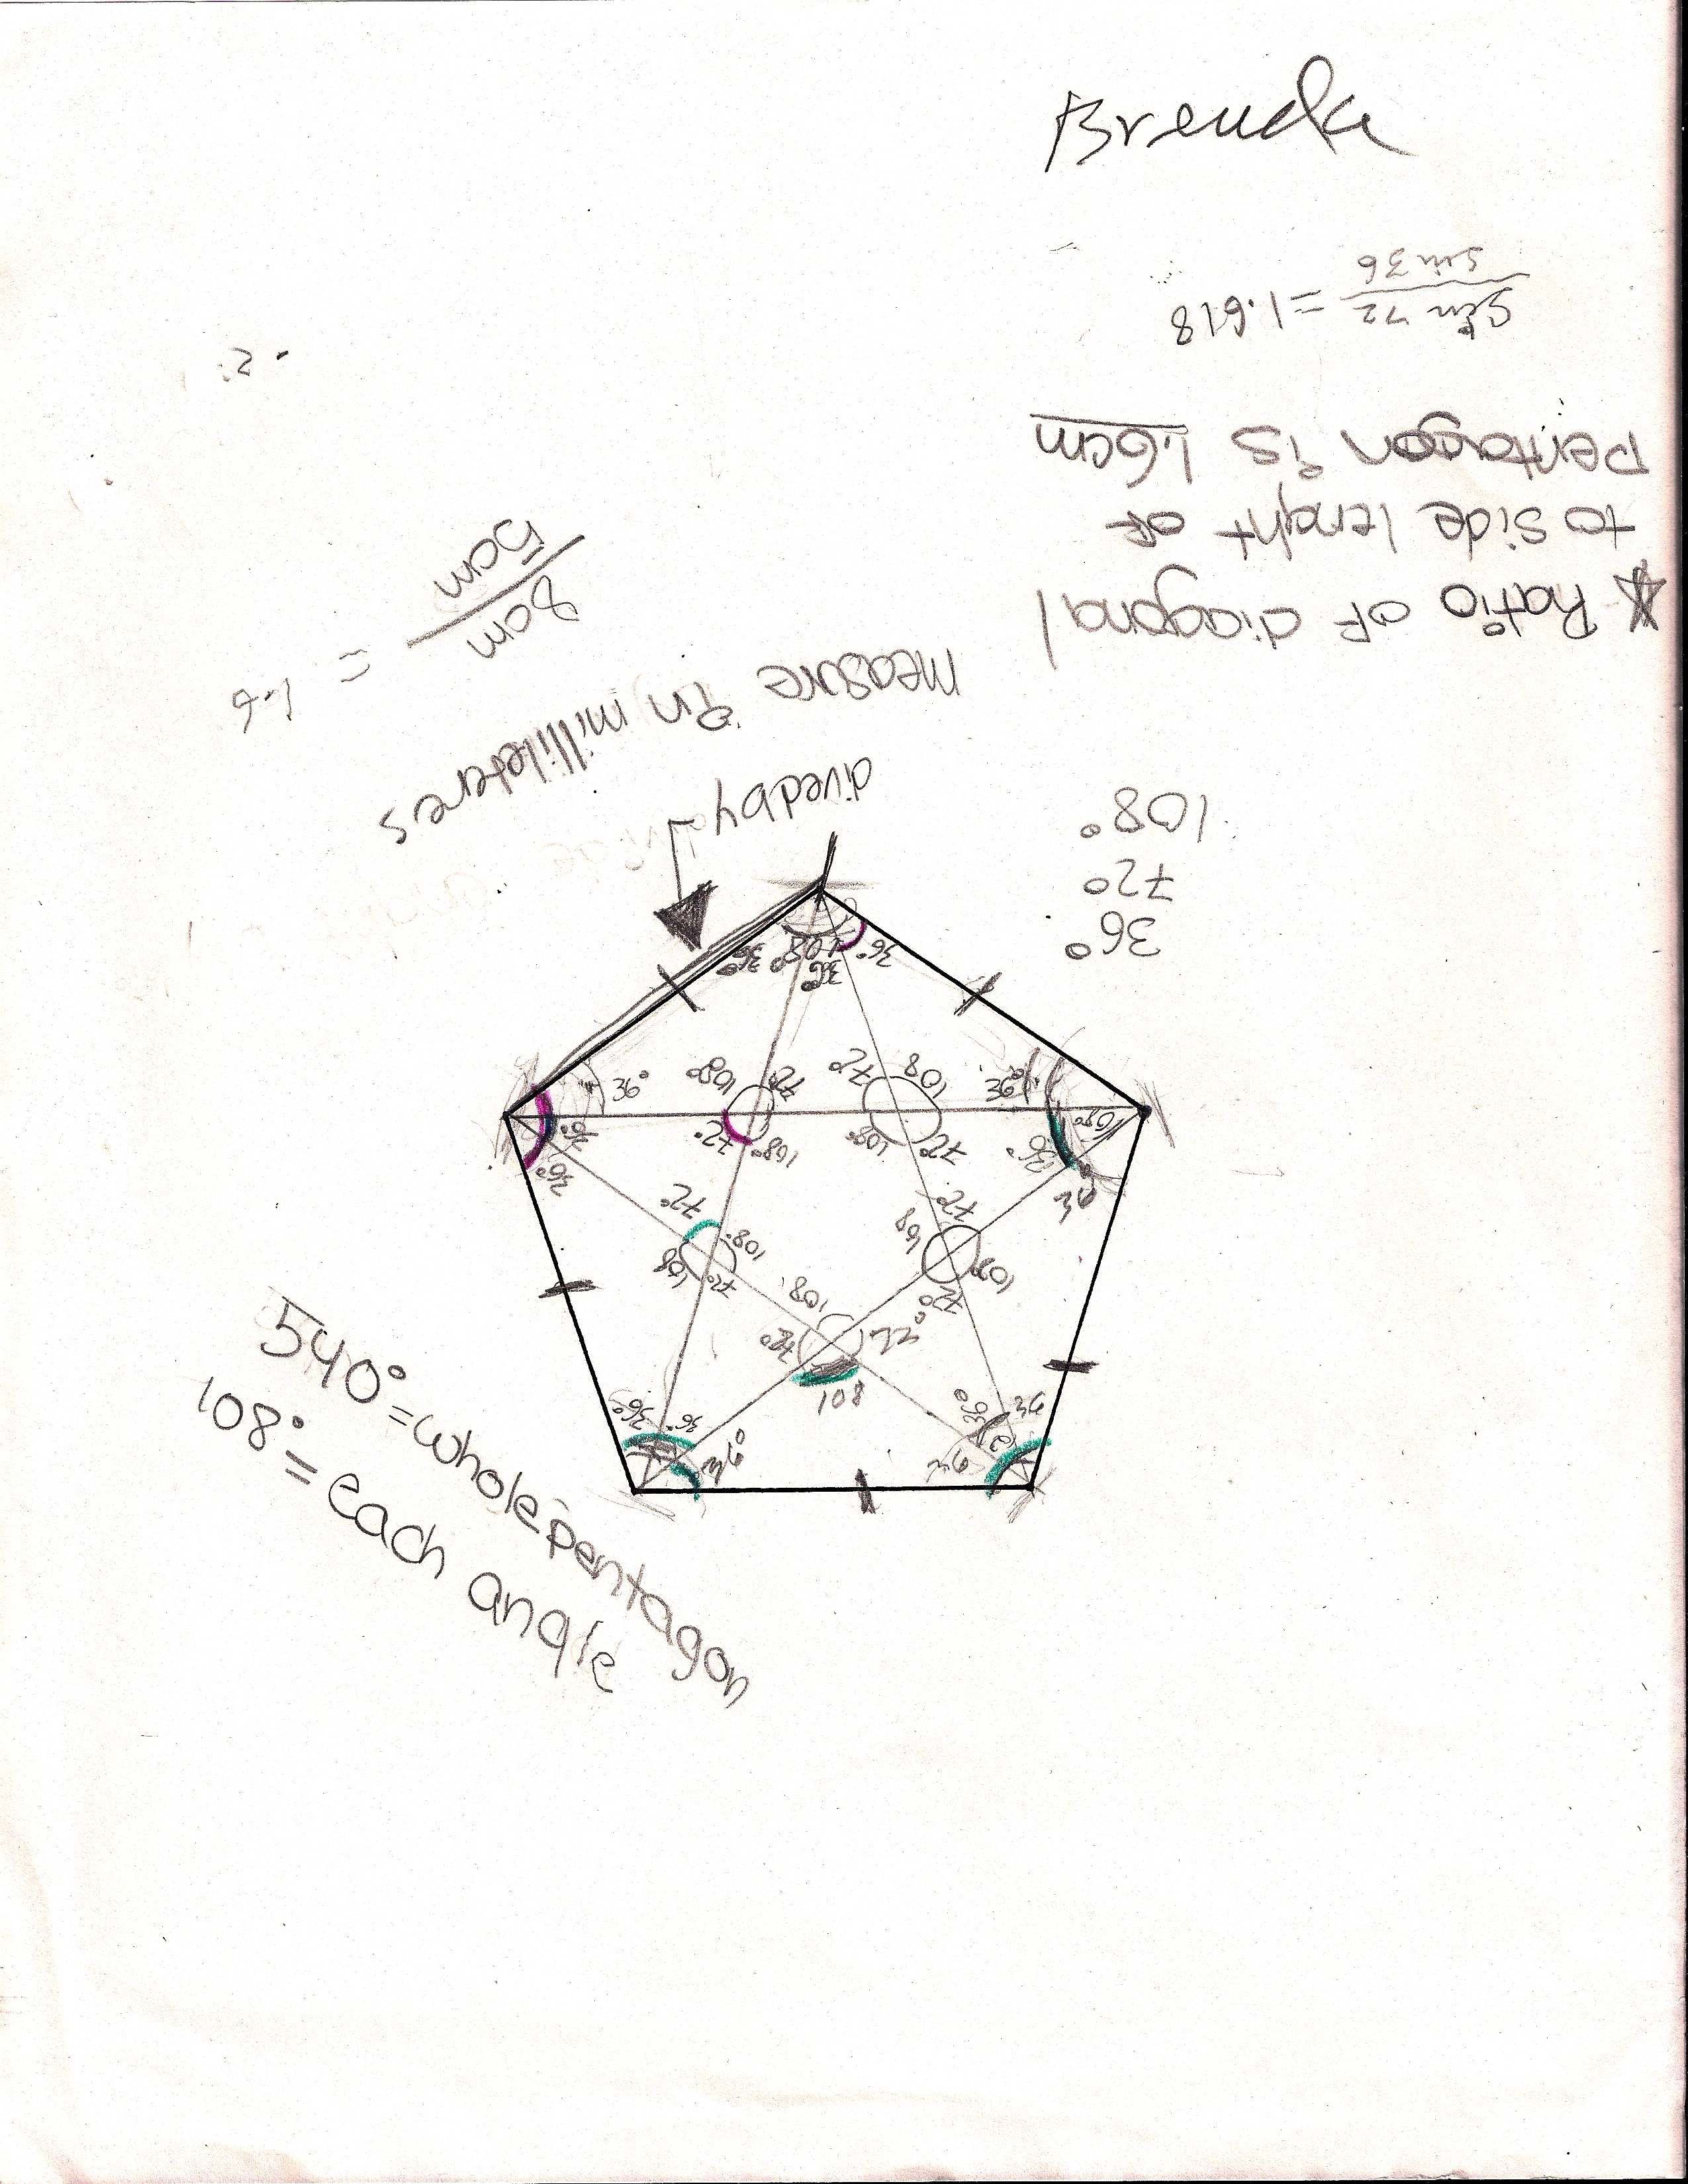 Brenda
sin 72 / sin 36 = 1.618
☆ Ratio of diagonal
to side lenght of
pentagon is 1.6cm
8cm / 5cm = 1.6
measure in milliletres
divedby
36°
72°
108°
36° 108° 36°
36°
36° 108° 72° 72° 108 36°
36° 72° 108° 108° 72° 36°
36° 36°
72° 108° 108 72°
108 72° 108° 72°
108°
72° 72°
108
36° 36° 36° 36° 36
36
540° = whole pentagon
108° = each angle